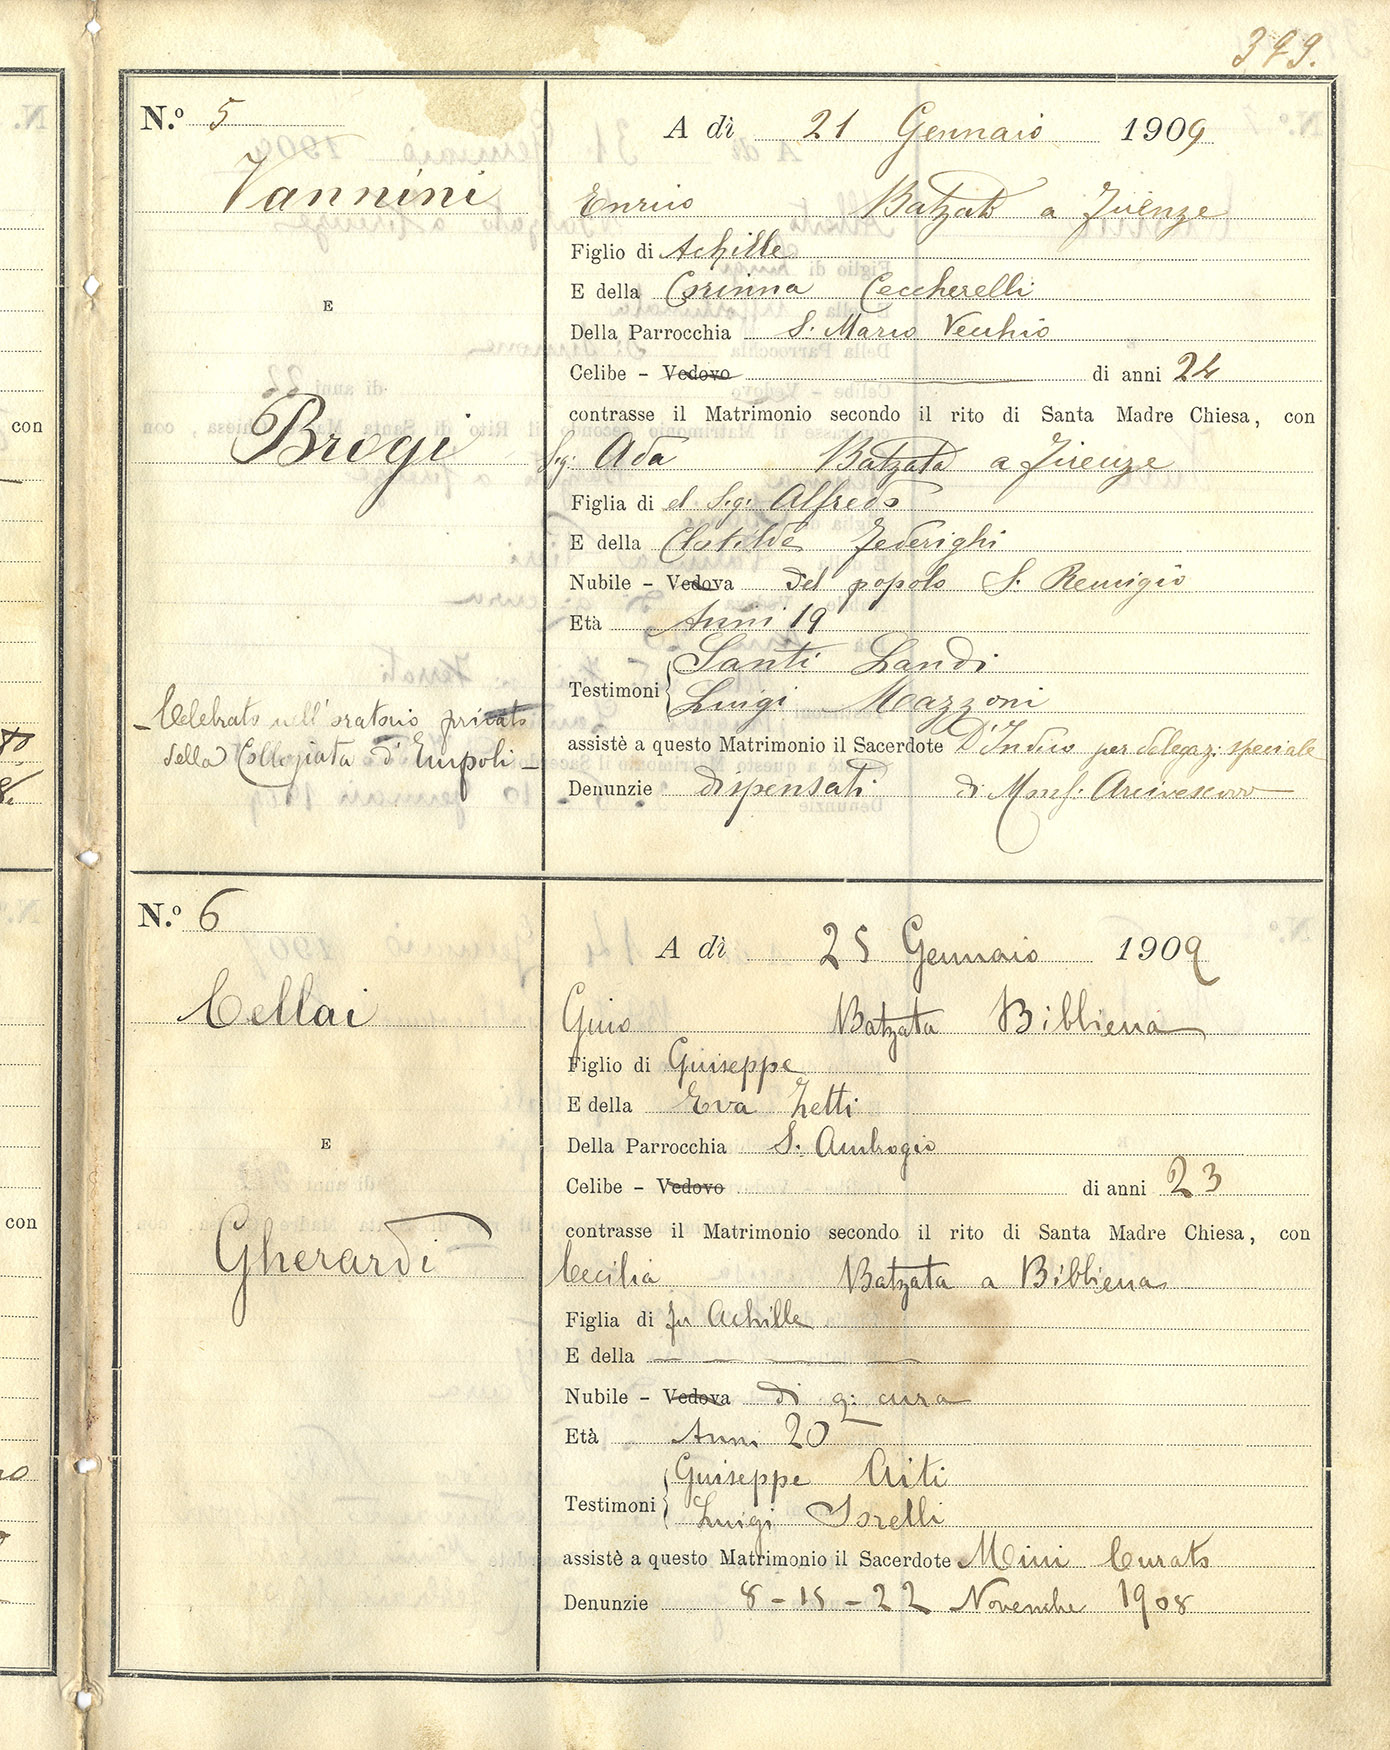 399.
N.º 5
A dì 21 Gennaio 1909
Vannini
Enrico Batzato a Firenze
Figlio di Achille
E della Corinna Ceccherelli
E
Della Parrocchia S. Marco Vecchio
Celibe - Vedovo di anni 24
contrasse il Matrimonio secondo il rito di Santa Madre Chiesa, con
Brogi
Sig: Ada Batzata a Firenze
Figlia di el Sig: Alfredo
E della Clotilde Federighi
Nubile - Vedova del popolo S. Remigio
Età Anni 19
Testimoni Santi Landi
Luigi Mazzoni
- Celebrato nell'oratorio privato
della Collegiata d'Empoli -
assistè a questo Matrimonio il Sacerdote D'Indico per delegaz: speciale
Denunzie dispensati di Mons: Arcivescovo
N.º 6
A dì 25 Gennaio 1909
Cellai
Gino Batzata Bibbiena
Figlio di Giuseppe
E della Eva Zetti
E
Della Parrocchia S. Ambrogio
Celibe - Vedovo di anni 23
contrasse il Matrimonio secondo il rito di Santa Madre Chiesa, con
Gherardi
Cecilia Batzata a Bibbiena
Figlia di fu Achille
E della
Nubile - Vedova di q: cura
Età Anni 20
Testimoni Giuseppe Aiti
Luigi Sorelli
assistè a questo Matrimonio il Sacerdote Mini Curato
Denunzie 8 - 15 - 22 Novembre 1908
con
con